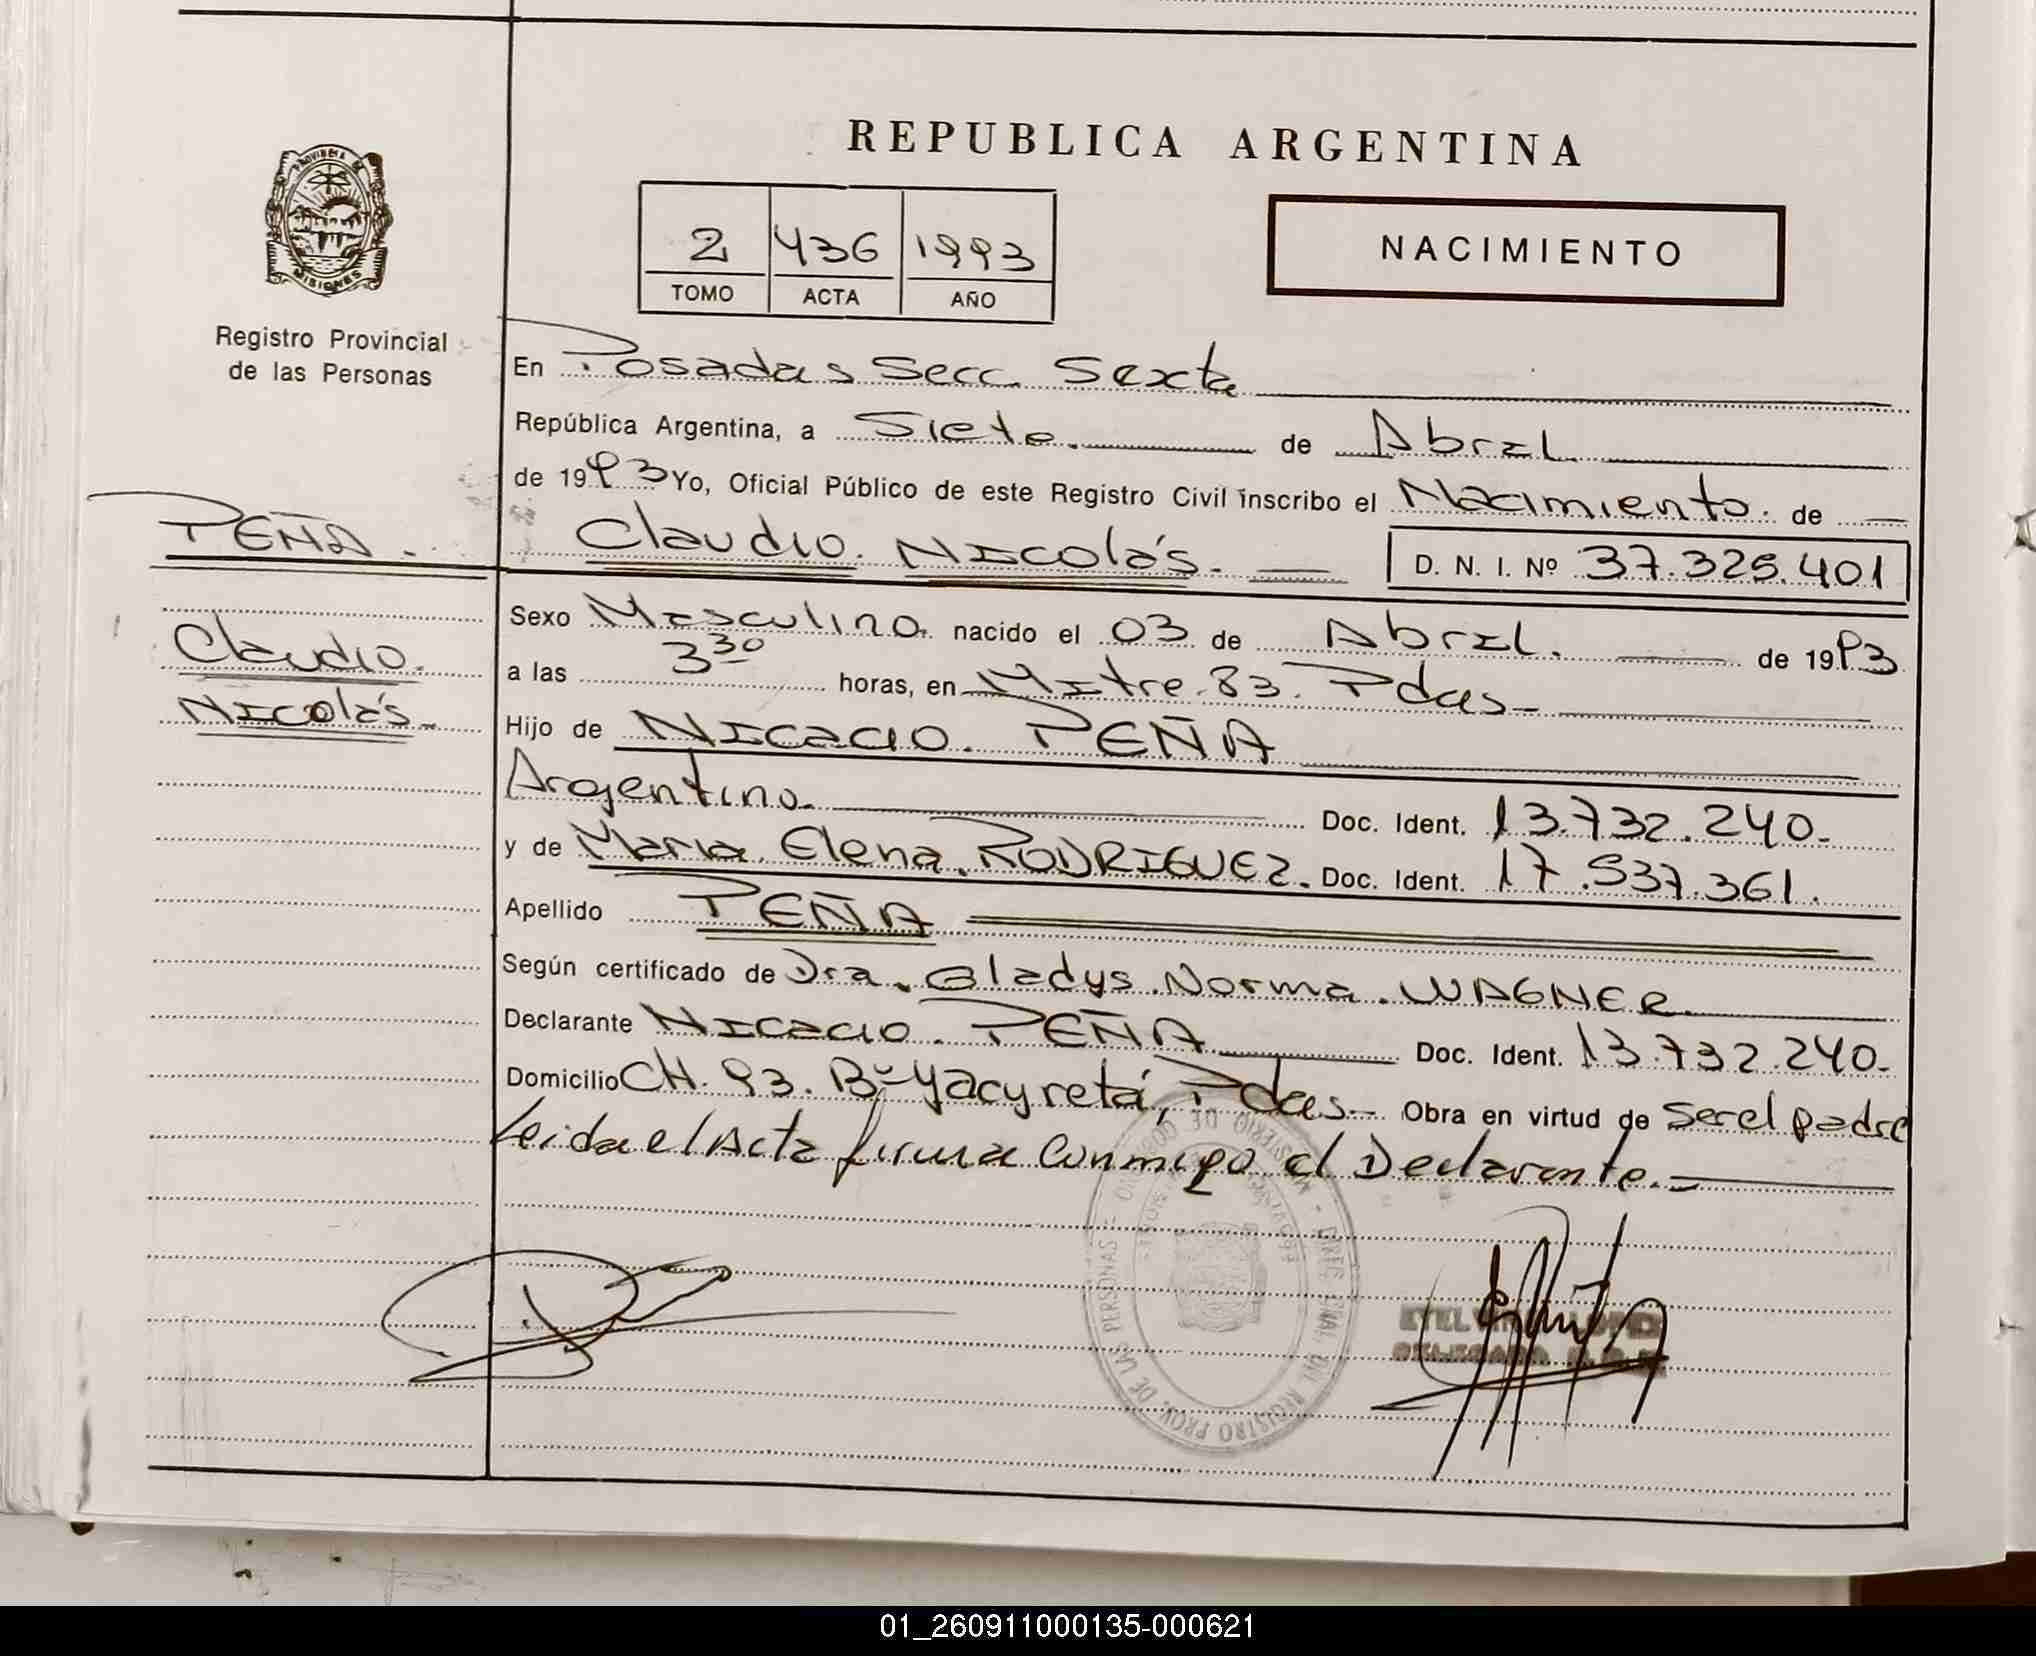 REPUBLICA ARGENTINA
PROVINCIA DE
MISIONES
Registro Provincial
de las Personas
2 436 1993
TOMO ACTA AÑO
NACIMIENTO
En Posadas Secc. Sexta
República Argentina, a Siete de Abril
de 1993 Yo, Oficial Público de este Registro Civil inscribo el Nacimiento. de
PEÑA.
Claudio. Nicolás.
D. N. I. Nº 37.325.401
Claudio.
Nicolás
Sexo Masculino. nacido el 03 de Abril. de 1993
a las 3 30 horas, en Mitre. 83. Pdas
Hijo de Nicacio. PEÑA
Argentino. Doc. Ident. 13.732.240.
y de María. Elena. RODRIGUEZ. Doc. Ident. 17.537.361.
Apellido PEÑA
Según certificado de Dra. Gladys. Norma. WAGNER.
Declarante Nicacio. PEÑA Doc. Ident. 13.732.240.
Domicilio CH. 93. Bº Yacyretá, Pdas Obra en virtud de Ser el padre
Leida el Acta firma conmigo el Declarante.
MINISTERIO DE GOBIERNO - DIREC. GRAL. DEL REGISTRO PROV. DE LAS PERSONAS
01_260911000135-000621